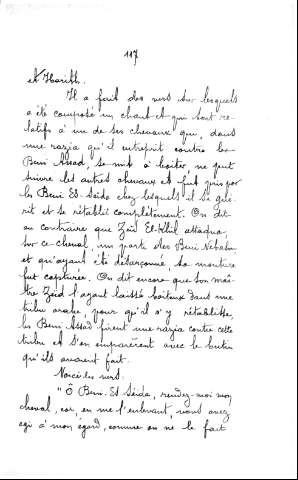 117
et Harith.
Il a fait des vers sur lesquels
a été composé un chant et qui sont re-
latifs à un de ses chevaux qui, dans
une razia qu'il entreprit contre les
Beni Assad, se mit à boiter, ne put
suivre les autres chevaux et fut pris par
les Beni Es-Seida chez lesquels il se gué-
rit et se rétablit complètement. On dit
au contraire que Zeid El-Khil attaqua,
sur ce cheval, un parti des Beni Nebahan
et qu'ayant été désarçonné, sa monture
fut capturée. On dit encore que son maî-
tre Zeid l'ayant laissé boiteux dans une
tribu arabe, pour qu'il s'y rétablisse,
les Beni Assad firent une razia contre cette
tribu et s'en emparèrent avec le butin
qu'ils avaient fait.
Voici les vers:
"Ô Beni-Es Seida, rendez-moi mon
cheval, car, en me l'enlevant, vous avez
agi à mon égard, comme on ne le fait